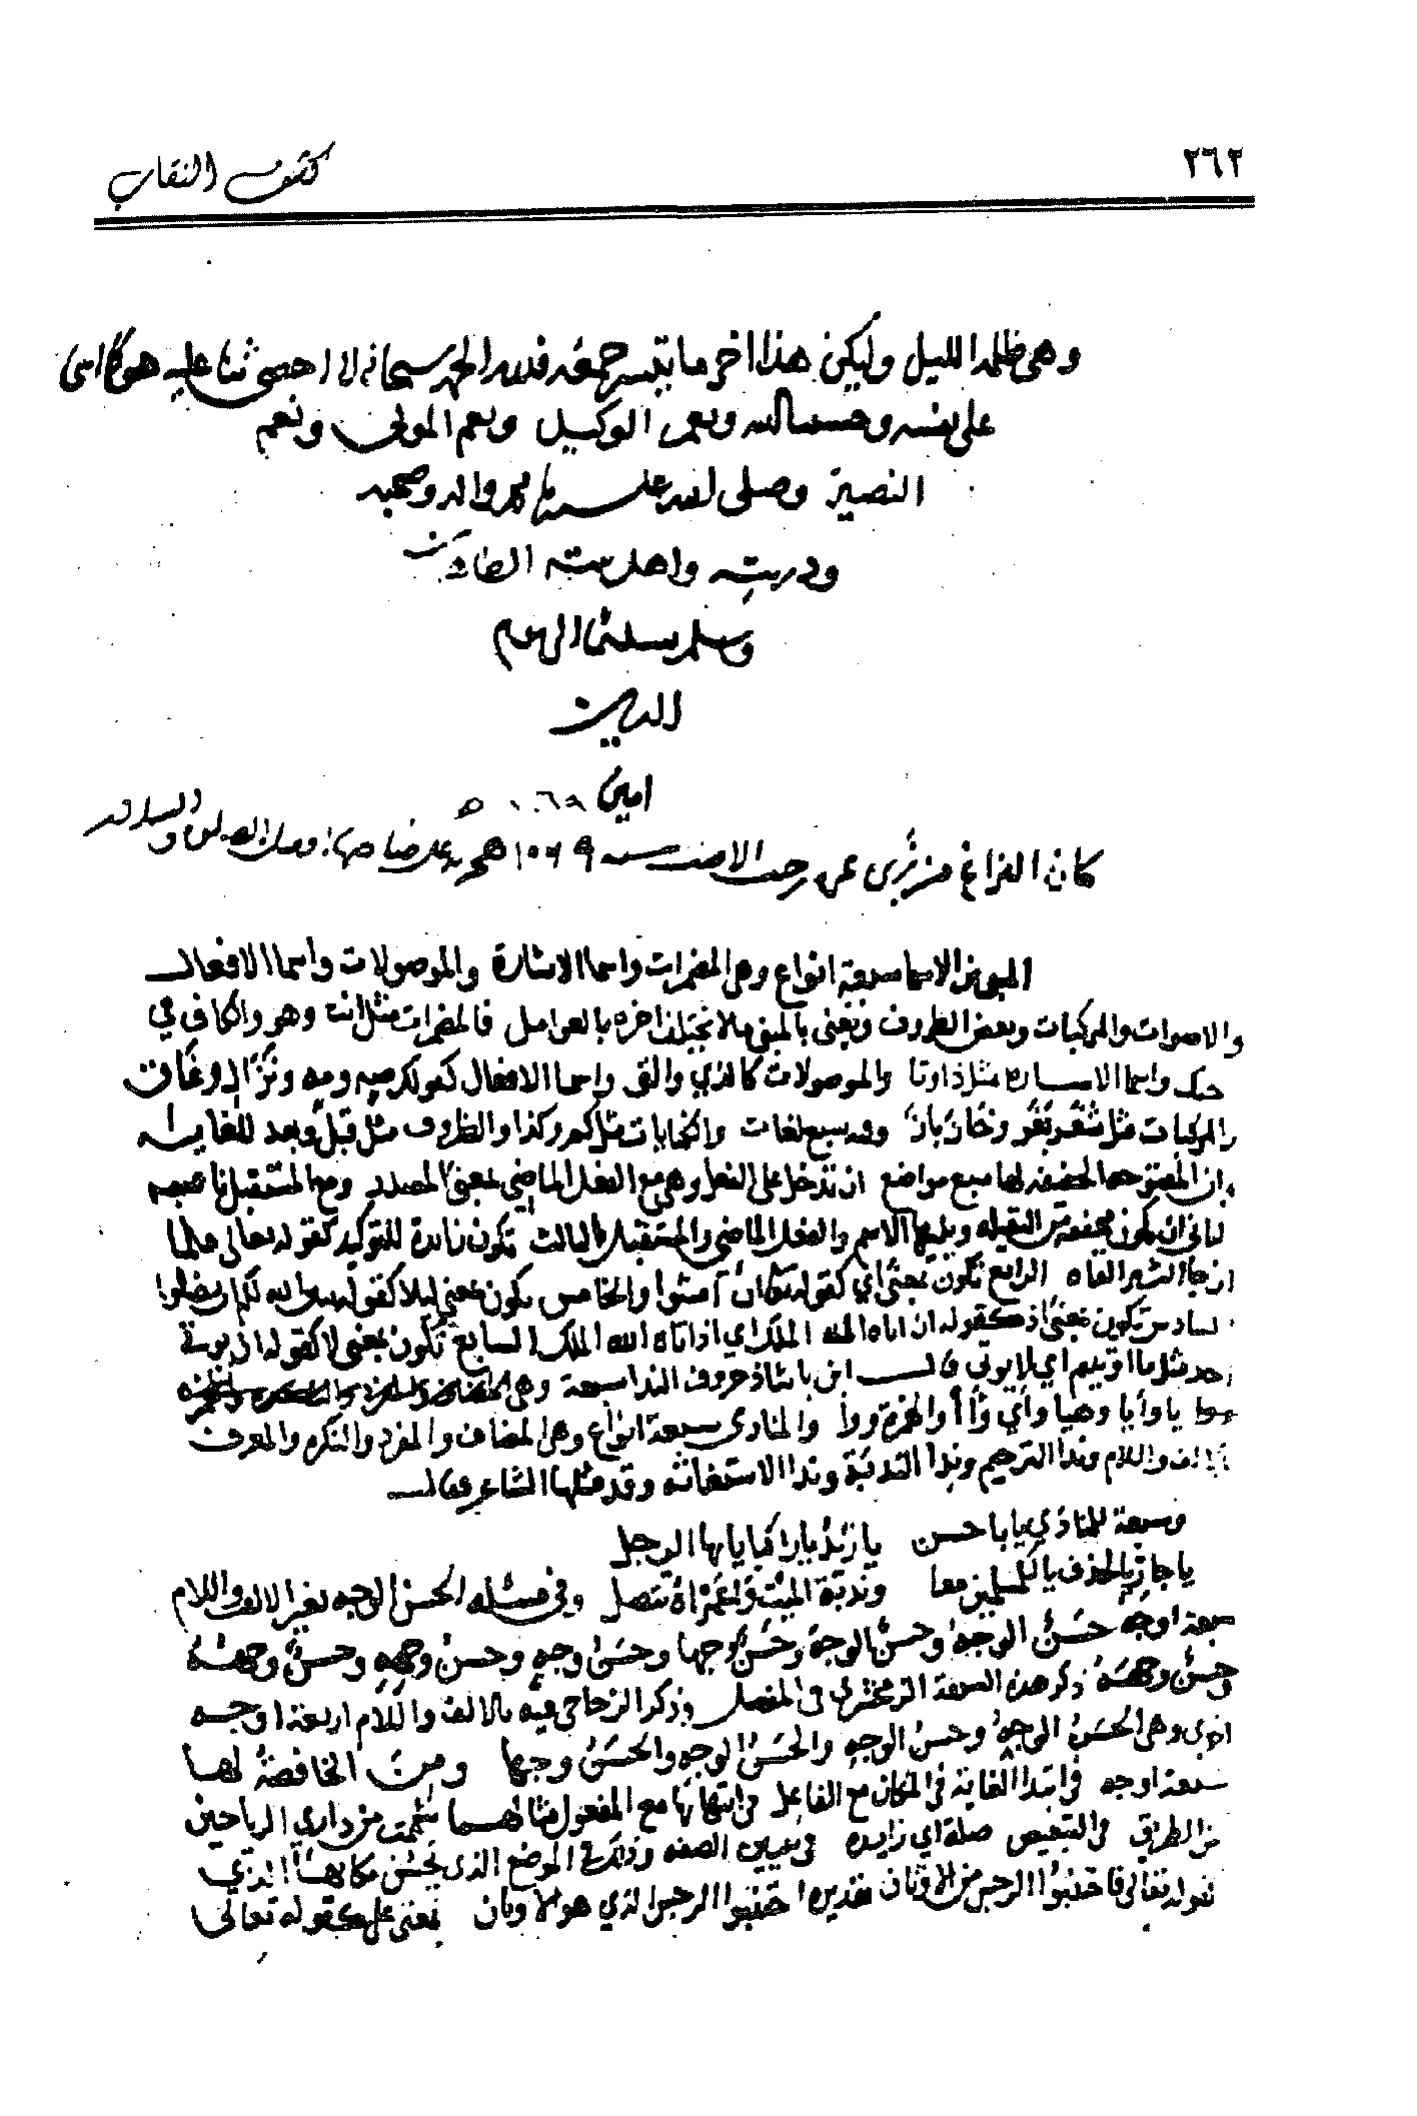 ٢٦٢
كشف النقاب
وهي ظلمة الليل وليكن هذا اخر ما تيسر جمعه فلله الحمد سبحانه لا احصي ثنا عليه هو كما اثنى
على نفسه وحسبنا الله ونعم الوكيل ونعم المولى ونعم
النصير وصلى الله على واله وصحبه
وذريته واهل بيته
وسلم تسليما الى يوم
الدين
امين ١٠٦٩ ه
كان الفراغ من رجب الاصب سنه ١٠٦٩ هجريه على صاحبها افضل الصلوة والسلام
المبني من الاسما سبعة انواع وهي المضمرات واسما الاشارة والموصولات واسما الافعال
والاصوات والمركبات وبعض الظروف ونعني بالمبني ما لا يختلف اخره بالعوامل فالمضمرات مثل انت وهو والكاف في
واسما الاشارة مثل ذا وتا والموصولات كالذي والتي واسما الافعال كقولك صه ومه ونزال وغاق
والمركبات مثل شغر بغر وخاز باز وفيه سبع لغات والكنايات مثل كم وكذا والظروف مثل قبل وبعد للغايه
ان المفتوحه الخفيفه لها سبع مواضع ان تدخل على الفعل وهي مع الفعل الماضي بمعنى المصدر ومع المستقبل ناصبه
الثاني ان يكون مخففة من الثقيله ويليها الاسم والفعل الماضي والمستقبل الثالث تكون زائدة للتوكيد كقوله تعالى فلما
ان جا البشير القاه الرابع تكون بمعنى اي كقوله تعالى ان امشوا والخامس يكون بمعنى ليلا كقوله يبين الله لكم ان تضلوا
السادس تكون بمعنى اذ كقوله ان اتاه الله الملك اي اذ اتاه الله الملك السابع تكون بمعنى لا كقوله ان يوتى
احد مثل ما اوتيتم اي لا يوتى قال ابن بابشاذ حروف الندا سبعة وهي
يا وأيا وهيا وأي وآ أ والهمزة ووا والمنادى سبعة انواع وهي المضاف والمفرد والنكره والمعرف
بالالف واللام وندا الترخيم وندا الندبة وندا الاستغاثه وقد مثلها الشاعر فقال
وسبعة للمنادى يابا حسن يا زيد يا راكبا يايها الرجل
يا جار بالحذف يا للمسلمين معا وندبة الميت واعمراه تتصل وفي مسئله الحسن الوجه بغير الالف واللام
سبعة اوجه حسن الوجه وحسن الوجه وحسن وجها وحسن وجه وحسن وجهه وحسن وجهه
وحسن وجهه ذكر هذه السبعة الزمخشري في المفصل وذكر الزجاجي فيه بالالف واللام اربعة اوجه
اخرى وهي الحسن الوجه وحسن الوجه والحسن الوجه والحسن وجها ومن الخافضة لها
سبعة اوجه في ابتدا الغاية في المكان مع الفاعل في انتهائها مع المفعول مثالهما شممت من داري الرياحين
من الطريق في التبعيض صلة اي زايده في تبيين الصفه وذلك في الموضع الذي يحسن مكانها الذي
كقوله تعالى فاجتنبوا الرجس من الاوثان تقديره اجتنبوا الرجس الذي هو الاوثان بمعنى على كقوله تعالى